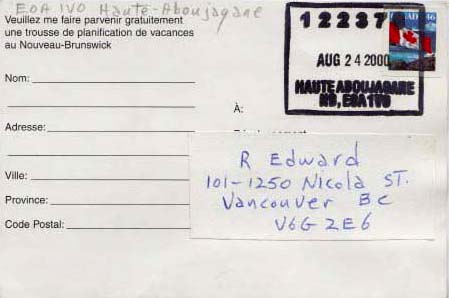 E0A 1V0 Haute-Aboujagane
Veuillez me faire parvenir gratuitement
une trousse de planification de vacances
au Nouveau-Brunswick
Nom:
Adresse:
Ville:
Province:
Code Postal:
122374
AUG 24 2000
HAUTE ABOUJAGANE
NB, E0A 1V0
46
À:
R Edward
101-1250 Nicola ST.
Vancouver BC
V6G 2E6